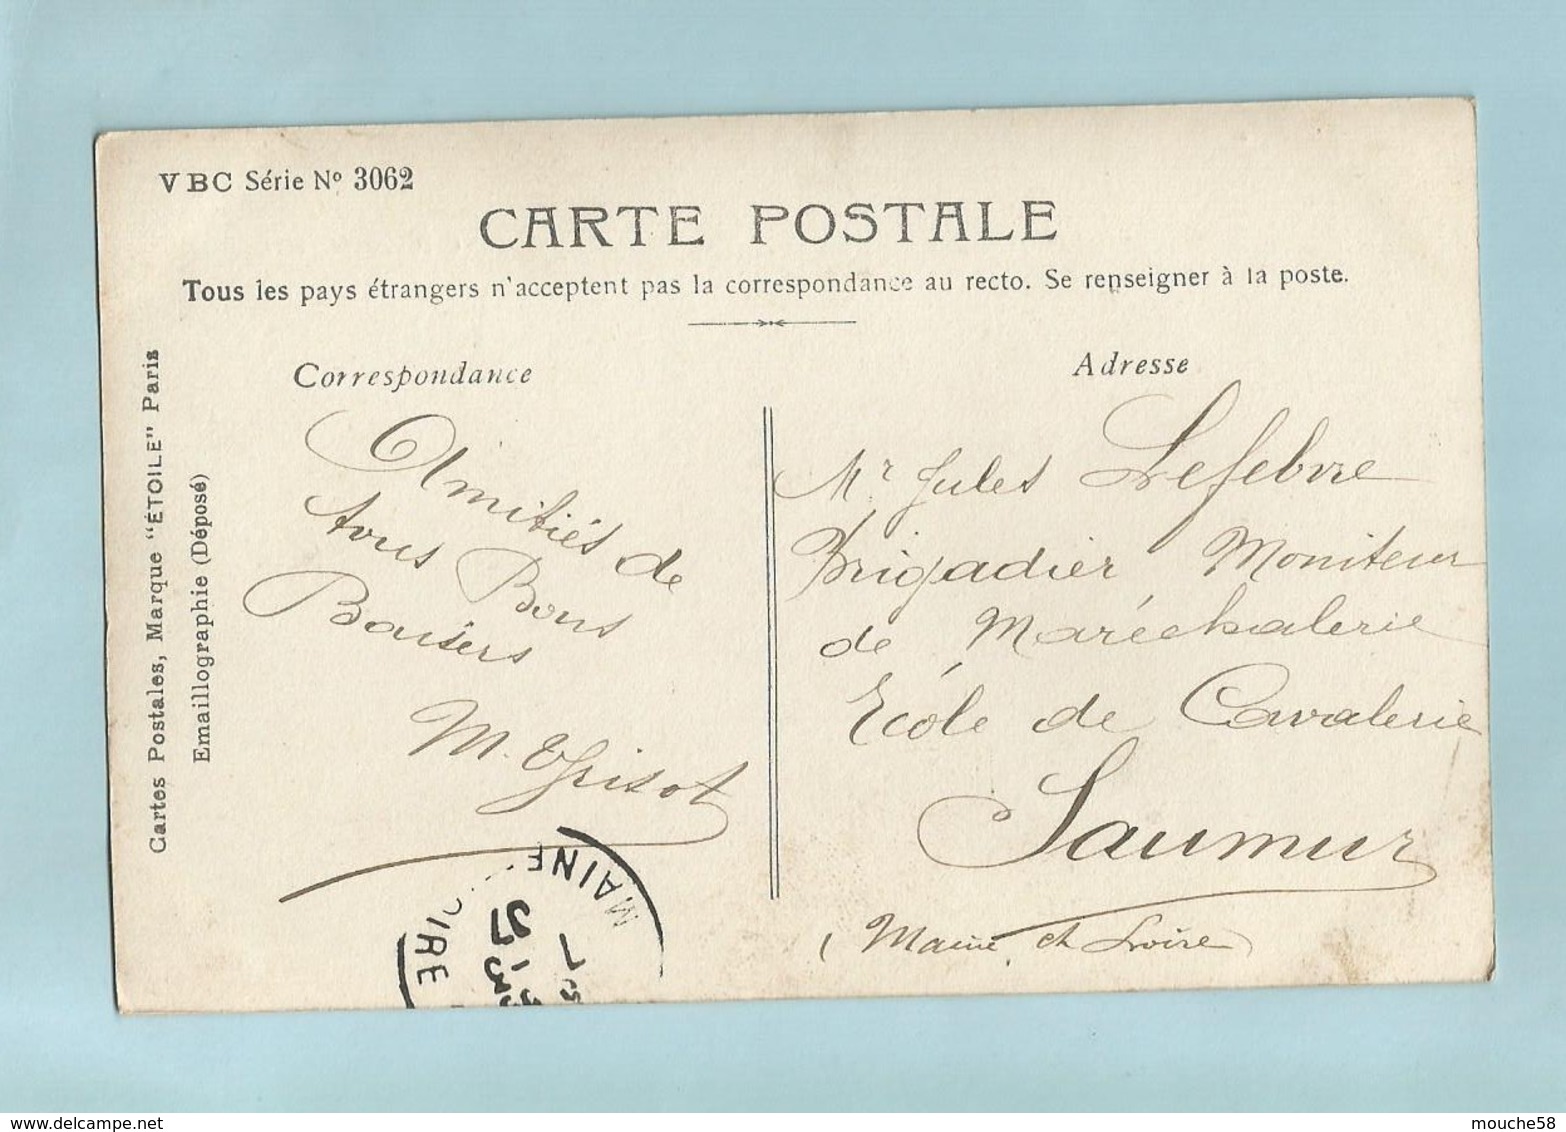 VBC Série Nº 3062
CARTE POSTALE
Tous les pays étrangers n'acceptent pas la correspondance au recto. Se renseigner à la poste.
Cartes Postales, Marque "ÉTOILE" Paris
Emaillographie (Déposé)
Correspondance
Amitiés de
tous Bons
Baisers
M. Grisot
Adresse
Mr Jules Lefebvre
Brigadier Moniteur
de Maréchalerie
École de Cavalerie
Saumur
(Maine et Loire)
MAINE
OIRE
mouche58